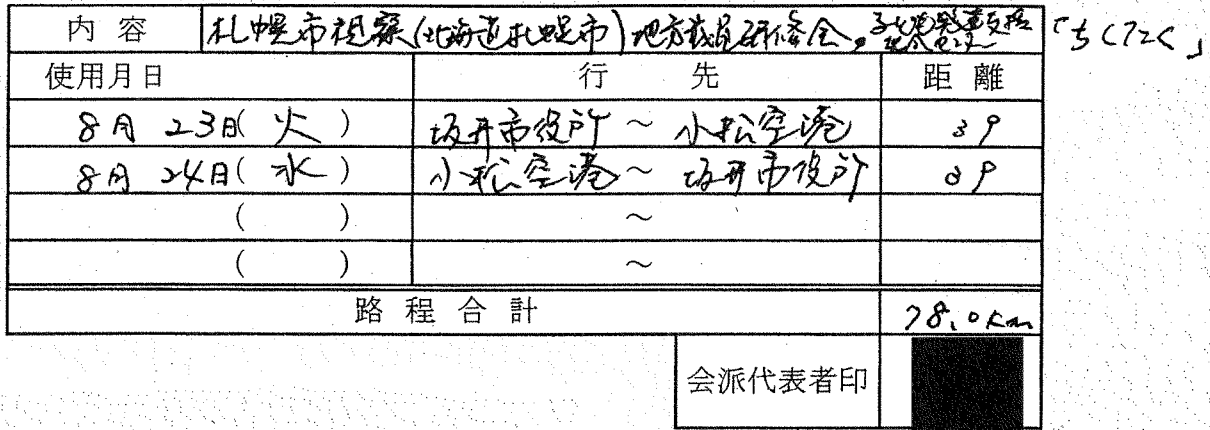 内容 札幌市視察(北海道札幌市)地方議員研修会、子ども発達支援総合センター「ちくたく」
使用月日 行先 距離
8月 23日( 火 ) 坂井市役所 ~ 小松空港 39
8月 24日( 水 ) 小松空港 ~ 坂井市役所 39
( ) ~
( ) ~
路程合計 78.0km
会派代表者印